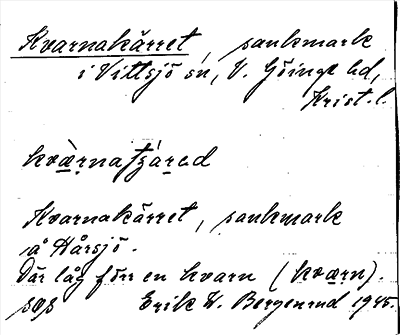 Kvarnakärret, sankmark
i Vittsjö sn, V. Göinge hd,
Krist. l.
kvὰ̱rnatʃά̱rad
Kvarnakärret, sankmark
å Hårsjö.
Där låg förr en kvarn (kva̱rn).
sos Erik W. Bergenrud 1945.